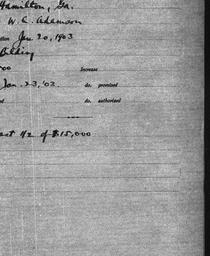 Hamilton, Ga.
W. C. Adamson
Jan 20, 1903
Building
Increase
Jan. 23, '03. do. promised
do. authorized
est 1/2 of $15,000